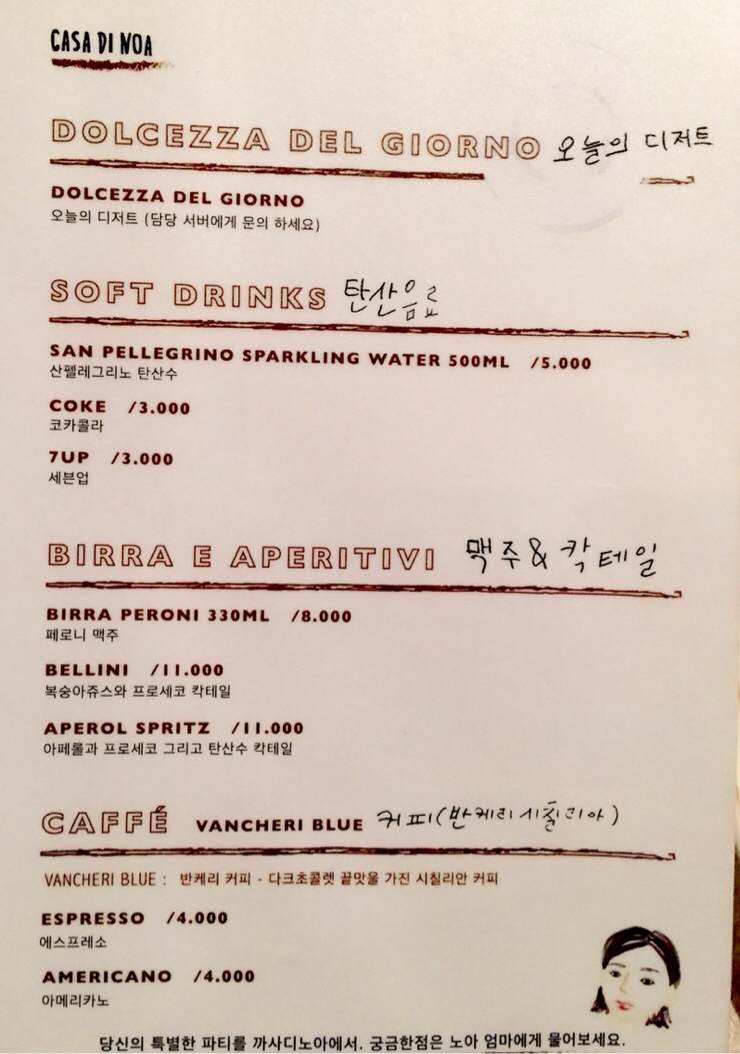 CASA DI NOA
DOLCEZZA DEL GIORNO 오늘의 디저트
DOLCEZZA DEL GIORNO
오늘의 디저트 (담당 서버에게 문의 하세요)
SOFT DRINKS 탄산음료
SAN PELLEGRINO SPARKLING WATER 500ML /5.000
산펠레그리노 탄산수
COKE /3.000
코카콜라
7UP /3.000
세븐업
BIRRA E APERITIVI 맥주 & 칵테일
BIRRA PERONI 330ML /8.000
페로니 맥주
BELLINI /11.000
복숭아쥬스와 프로세코 칵테일
APEROL SPRITZ /11.000
아페롤과 프로세코 그리고 탄산수 칵테일
CAFFÉ VANCHERI BLUE 커피(반케리 시칠리아)
VANCHERI BLUE : 반케리 커피 - 다크초콜렛 끝맛을 가진 시칠리안 커피
ESPRESSO /4.000
에스프레소
AMERICANO /4.000
아메리카노
당신의 특별한 파티를 까사디노아에서. 궁금한점은 노아 엄마에게 물어보세요.